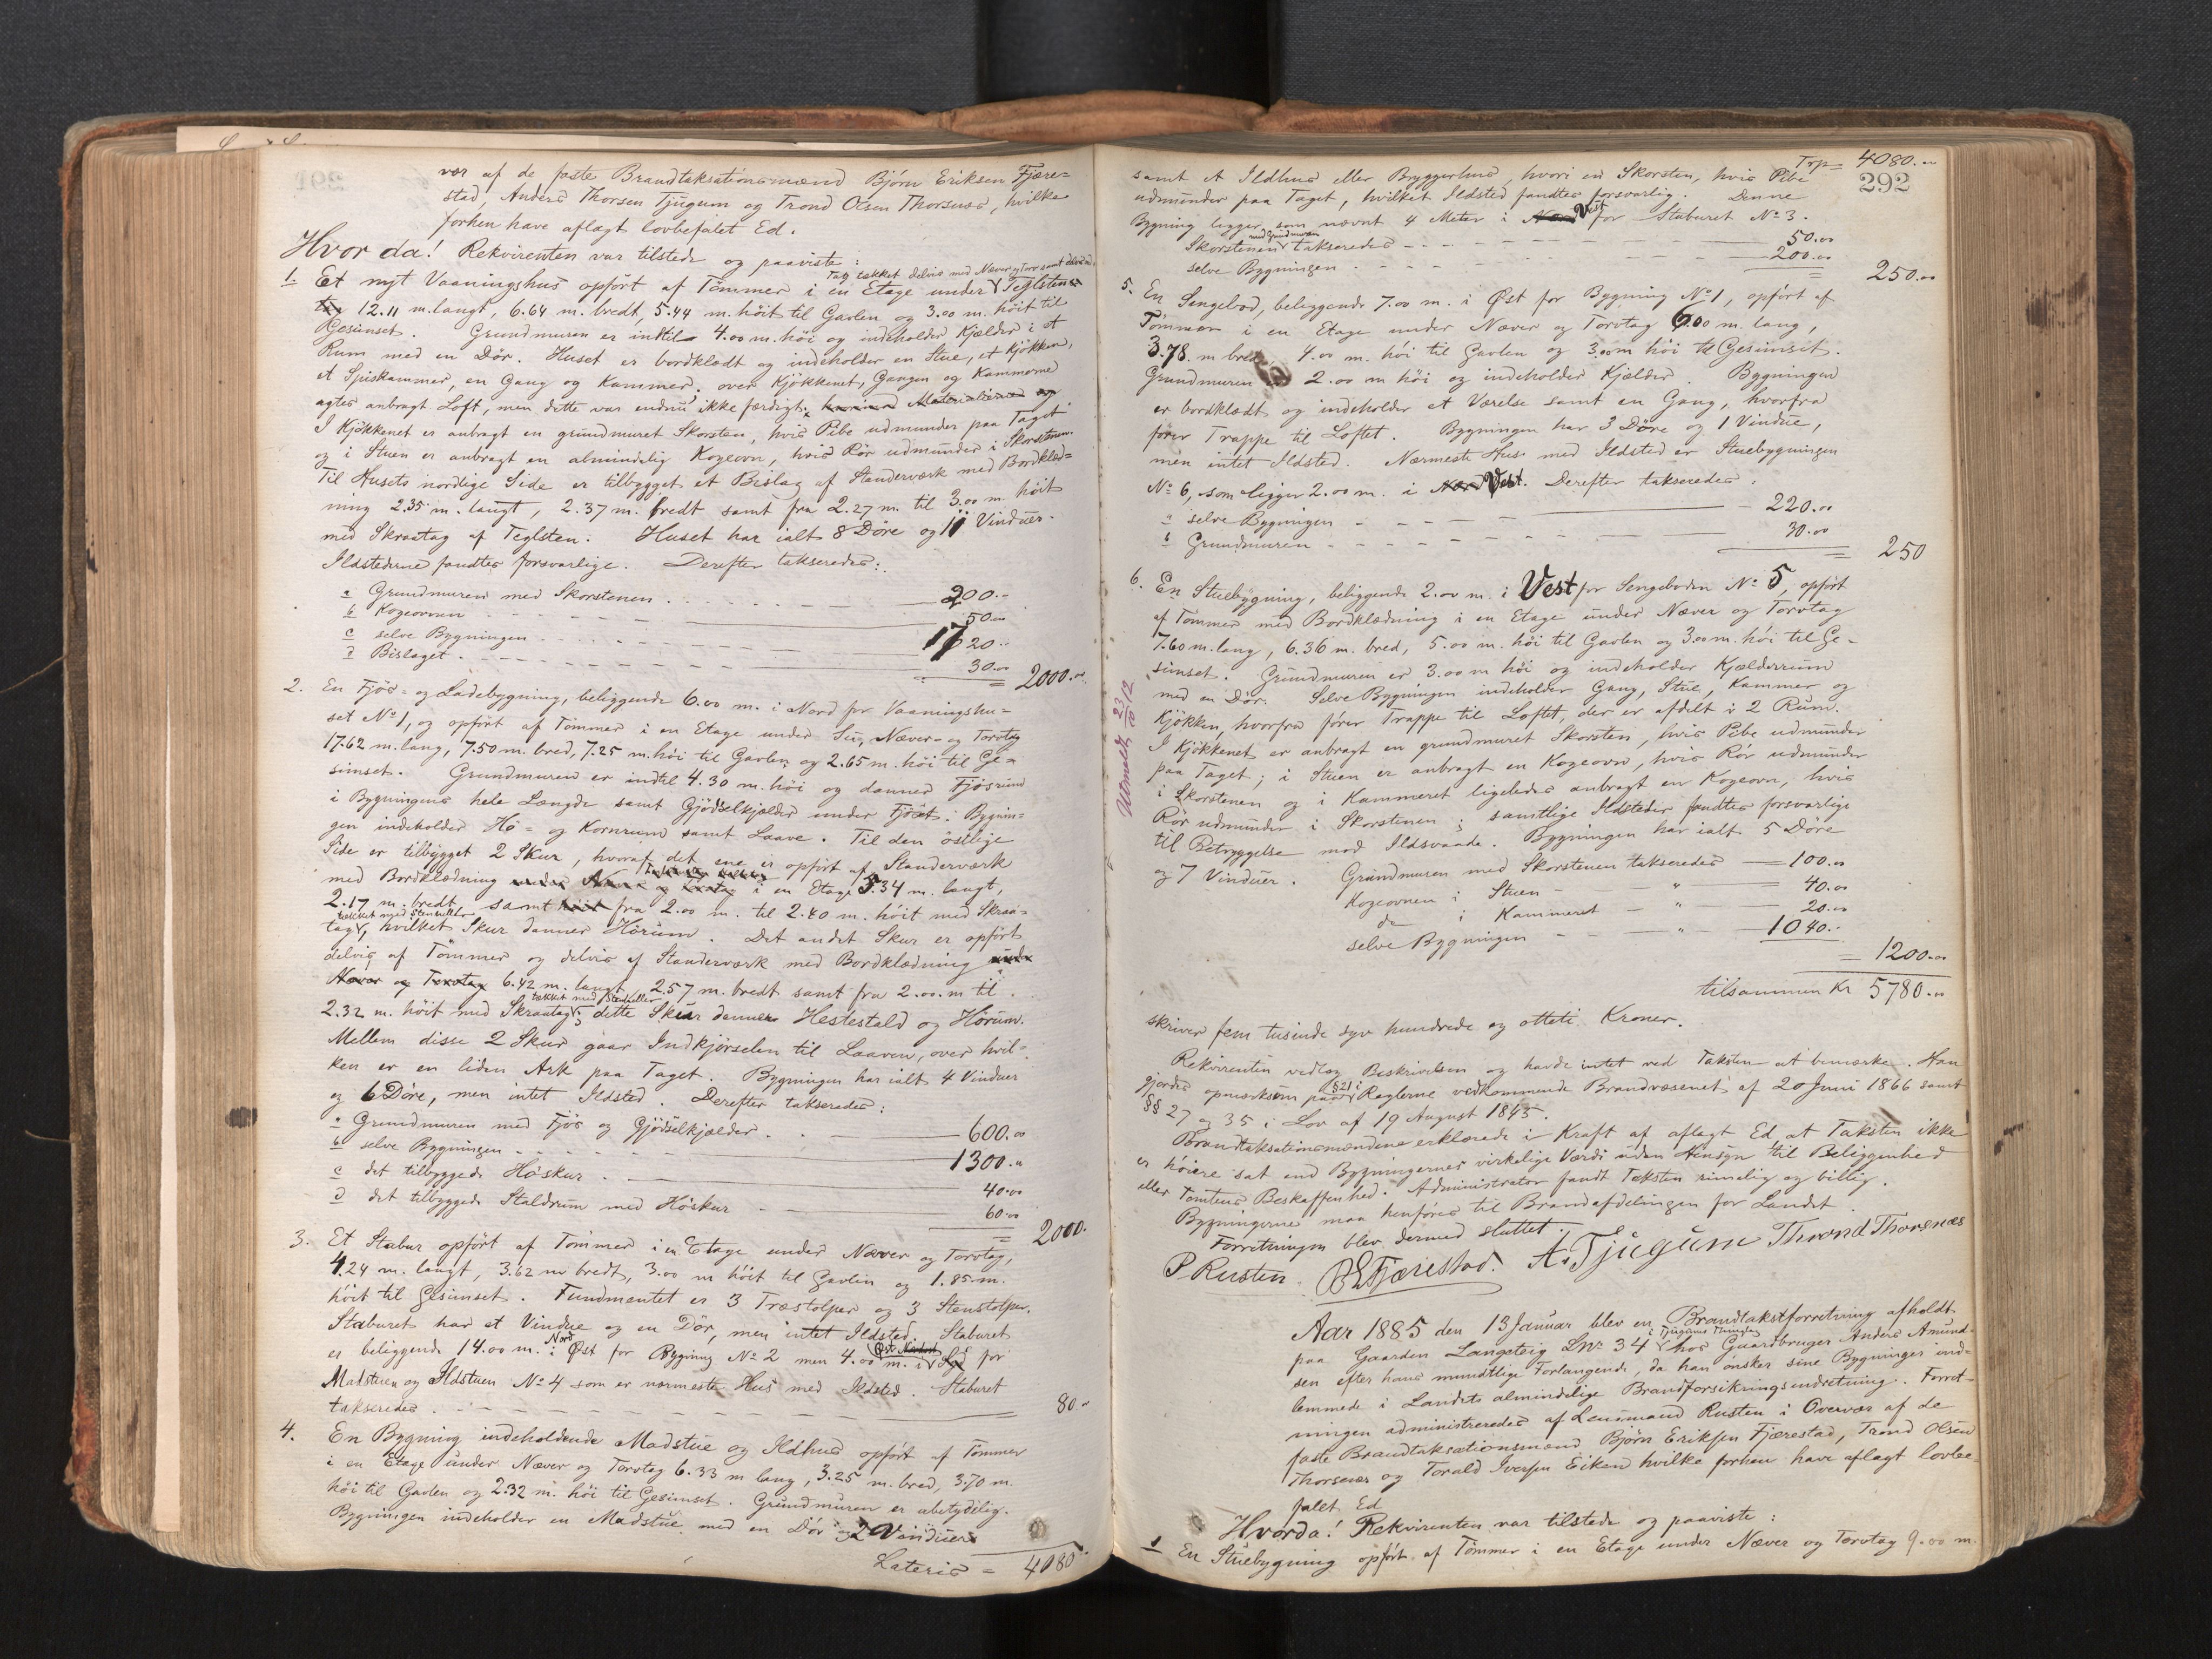 vær af de faste Brandtaksationsmænd Bjørn Eriksen Fjære-
stad, Anders Thorsen Tjugum og Trond Olsen Thorsnæs, hvilke
forhen have aflagt lovbefalet Ed.
Hvor da! Rekvirenten var tilstede og paaviste:
Tag tækket delvis med Næver og Torv samt delvis med
1. Et nyt Vaaningshus opført af Tömmer i en Etage under Teglstens
tag 12.11 m. langt, 6.64 m. bredt, 5.44 m. höit til Gavlen og 3.00 m. höit til
Gesimset. Grundmuren er indtil 4.00 m. höi og indeholder Kjælder i et
Rum med en Dör. Huset er bordklædt og indeholder en Stue, et Kjøkken,
et Spiskammer, en Gang og Kammer; over Kjøkkenet, Gangen og Kammerne
agtes anbragt Loft, men dette var endnu ikke færdigt; hvorimod Materialierne og
I Kjøkkenet er anbragt en grundmuret Skorsten, hvis Pibe udmunder paa Taget
og i Stuen er anbragt en almindelig Kogeovn, hvis Rör udmunder i Skorstenen.
Til Husets nordlige Side er tilbygget et Bislag af Standerværk med Bordklæd-
ning 2.35 m. langt, 2.37 m. bredt samt fra 2.27 m. til 3.00 m. höit
med Skraatag af Teglsten. Huset har ialt 8 Döre og 11 Vinduer.
Ildstederne fandtes forsvarlige. Derefter takseredes:
a Grundmuren med Skorstenen 200.-
b Kogeovnen 50.00
c selve Bygningen 1720.-
d Bislaget 30.00
= 2000.00
2. En Fjös- og Ladebygning, beliggende 6.00 m. i Nord for Vaaningshu-
set No 1, og opført af Tömmer i en Etage under Næver- og Torvtag
17.62 m. lang, 7.50 m. bred, 7.25 m. höi til Gavlen og 2.65 m. höi til Ge-
simset. Grundmuren er indtil 4.30 m. höi og danner Fjösrum
i Bygningens hele Længde samt Gjödselkjælder under Fjöset. Bygnin-
gen indeholder Hö- og Kornrum samt Laave. Til den östlige
Side er tilbygget 2 Skur, hvoraf det ene er opført af Standerværk
med Bordklædning under Næver og Torvtag i en Etage 5.34 m. langt,
2.17 m. bredt, samt höit fra 2.00 m. til 2.40 m. höit med Skraa-
tækket med Stenheller
tag, hvilket Skur danner Hörum. Det andet Skur er opført
delvis af Tömmer og delvis af Standerværk med Bordklædning under
Næver og Torvtag 6.42 m. langt, 2.57 m. bredt samt fra 2.00 m til
tækket med Stenheller
2.32 m. höit med Skraatag; dette Skur danner Hestestald og Hörum.
Mellem disse 2 Skur gaar Indkjørselen til Laaven, over hvil-
ken er en liden Ark paa Taget. Bygningen har ialt 4 Vinduer
og 6 Döre, men intet Ildsted. Derefter takseredes:
a Grundmuren med Fjös og Gjödselkjælder 600.00
b selve Bygningen 1300.00
c det tilbyggede Höskur 40.00
d det tilbyggede Staldrum med Höskur 60.00
= 2000.
3. Et Stabur opført af Tömmer i en Etage under Næver og Torvtag,
4.24 m. langt, 3.62 m bredt, 3.00 m höit til Gavlen og 1.85 m.
höit til Gesimset. Fundmentet er 3 Træstolper og 3 Stenstolper.
Staburet har et Vindue og en Dör, men intet Ildsted. Staburet
Nord
er beliggende 14.00 m. i Øst for Bygning No 2 men 4.00 m. i Syd for
Madstuen og Ildstuen No 4 som er nærmeste Hus med Ildsted. Staburet
takseredes 80.-
4. En Bygning indeholdende Madstue og Ildhus opført af Tömmer
i en Etage under Næver og Torvtag 6.33 m lang, 3.25 m. bred, 3.70 m.
höi til Gavlen og 2.32 m. höi til Gesimset. Grundmuren er ubetydelig.
Bygningen indeholder en Madstue med en Dör og 2 Vinduer
Lateris = 4080.
Trp= 4080.00
292
samt et Ildhus eller Bryggerhus, hvori en Skorsten, hvis Pibe
udmunder paa Taget, hvilket Ildsted fandtes forsvarlig. Denne
Bygning ligger som nævnt 4 Meter i Nord Vest for Staburet No 3.
med Grundmuren
Skorstenen takseredes 50.00
selve Bygningen 200.00
= 250.00
5. En Sengebod, beliggende 7.00 m. i Øst for Bygning No 1, opført af
Tömmer i en Etage under Næver og Torvtag 6.00 m. lang,
3.78 m bred, 4.00 m. höi til Gavlen og 3.00 m höi til Gesimset.
Grundmuren 2.00 m höi og indeholder Kjælder. Bygningen
er bordklædt og indeholder et Værelse samt en Gang, hvorfra
fører Trappe til Loftet. Bygningen har 3 Döre og 1 Vindue,
men intet Ildsted. Nærmeste Hus med Ildsted er Stuebygningen
No 6, som ligger 2.00 m. i Nord Vest. Derefter takseredes.
a selve Bygningen 220.00
b Grundmuren 30.00
= 250
6. En Stuebygning, beliggende 2.00 m. i Vest for Sengeboden No 5, opført
af Tömmer med Bordklædning i en Etage under Næver og Torvtag
7.60 m. lang, 6.36 m. bred, 5.00 m. höi til Gavlen og 3.00 m. höi til Ge-
simset. Grundmuren er 3.00 m höi og indeholder Kjælderrum
med en Dör. Selve Bygningen indeholder Gang, Stue, Kammer og
Kjøkken, hvorfra fører Trappe til Loftet, der er afdelt i 2 Rum.
I Kjøkkenet er anbragt en grundmuret Skorsten, hvis Pibe udmunder
paa Taget; i Stuen er anbragt en Kogeovn, hvis Rör udmunder
i Skorstenen og i Kammeret ligeledes anbragt en Kogeovn, hvis
Rör udmunder i Skorstenen; samtlige Ildsteder fandtes forsvarlige
til Betryggelse mod Ildsvaade. Bygningen har ialt 5 Döre
og 7 Vinduer. Grundmuren med Skorstenen takseredes 100.00
Kogeovnen i Stuen " 40.00
do i Kammeret " 20.00
selve Bygningen " 1040.-
= 1200.00
tilsammen Kr 5780.00
skriver fem tusinde syv hundrede og otteti Kroner.
Rekvirenten vedtog Beskrivelsen og havde intet ved Taksten at bemærke. Han
§ 21 i
gjordes opmærksom paa Reglerne vedkommende Brandvæsenet af 20 Juni 1866 samt
§§ 27 og 35 i Lov af 19 August 1845.
Brandtaksationsmændene erklærede i Kraft af aflagt Ed, at Taksten ikke
er höiere sat end Bygningernes virkelige Værdi uden Hensyn til Beliggenhed
eller Tomtens Beskaffenhed. Administrator fandt Taksten rimelig og billig.
Bygningerne maa henføres til Brandafdelingen for Landet.
Forretningen blev dermed sluttet.
P Rusten. B E Fjærestad. A. Tjugum Thrond Thorsnæs
Aar 1885 den 13 Januar blev en Brandtakstforretning afholdt
i Tjugums Thinglag
paa Gaarden Langeteig LNr 34 hos Gaardbruger Anders Amund-
sen efter hans mundtlige Forlangende, da han ønsker sine Bygninger ind-
lemmede i Landets almindelige Brandforsikringsindretning. Forret-
ningen administreredes af Lensmand Rusten i Overvær af de
faste Brandtaksationsmænd Bjørn Eriksen Fjærestad, Trond Olsen
Thorsnæs og Torald Iversen Eiken hvilke forhen have aflagt lovbe-
falet Ed
Hvorda! Rekvirenten var tilstede og paaviste:
1 En Stuebygning opført af Tömmer i en Etage under Næver og Torvtag 9.00 m.